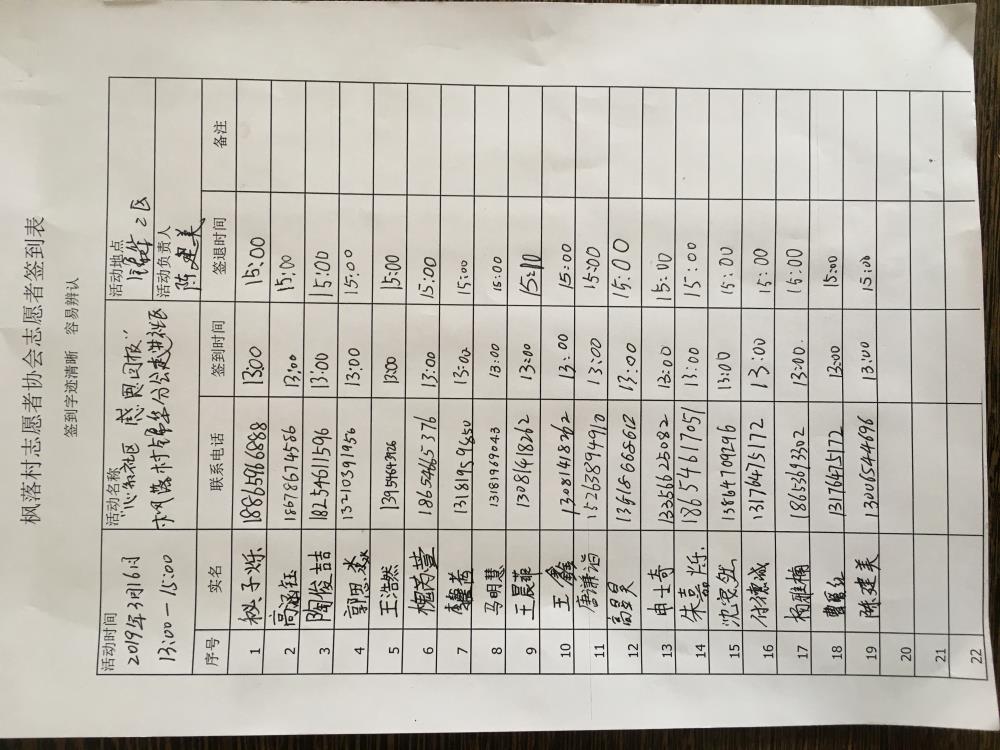 枫落村志愿者协会志愿者签到表
签到字迹清晰 容易辨认
活动时间 活动名称 活动地点
2019年3月16日 感恩回报" 锦华二区
13:00-15:00 枫落村锦华分公走进社区 活动负责人 陈建美
序号 实名 联系电话 签到时间 签退时间 备注
1 子烁 18865966888 13:00 15:00
2 高涵钰 18678674586 13:00 15:00
3 陶俊喆 18254611596 13:00 15:00
4 郭思淼 13210391956 13:00 15:00
5 王浩然 13:00 15:00
6 槐芮萱 18654665376 13:00 15:00
7 13181959850 13:00 15:00
8 马明慧 13181969043 13:00 15:00
9 王晨菲 13081418262 13:00 15:10
10 王鑫 13081418262 13:00 15:00
11 唐潇涵 15263894910 13:00 15:00
12 高昊 13518668612 13:00 15:00
13 申士奇 13356625082 13:00 15:00
14 朱嘉烁 18654617051 13:00 15:00
15 13864709296 13:00 15:00
16 付德诚 13176475172 13:00 15:00
17 杨雅楠 18653693302 13:00 15:00
18 13176475172 13:00 15:00
19 陈建美 13006544696 13:00 15:00
20
21
22